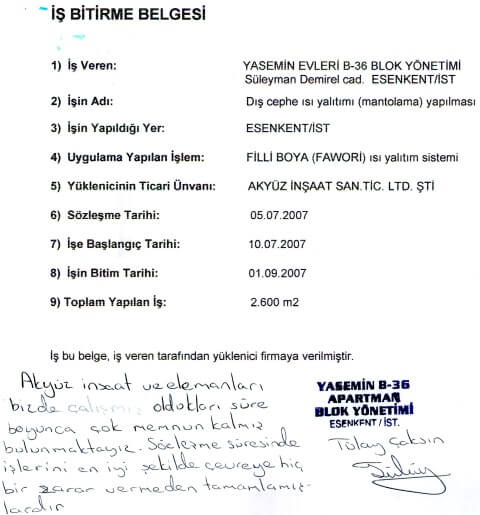 İŞ BİTİRME BELGESİ
1) İş Veren: YASEMİN EVLERİ B-36 BLOK YÖNETİMİ
Süleyman Demirel cad. ESENKENT/İST
2) İşin Adı: Dış cephe ısı yalıtımı (mantolama) yapılması
3) İşin Yapıldığı Yer: ESENKENT/İST
4) Uygulama Yapılan İşlem: FİLLİ BOYA (FAWORİ) ısı yalıtım sistemi
5) Yüklenicinin Ticari Ünvanı: AKYÜZ İNŞAAT SAN.TİC. LTD. ŞTİ
6) Sözleşme Tarihi: 05.07.2007
7) İşe Başlangıç Tarihi: 10.07.2007
8) İşin Bitim Tarihi: 01.09.2007
9) Toplam Yapılan İş: 2.600 m2
İş bu belge, iş veren tarafından yüklenici firmaya verilmiştir.
Akyüz inşaat ve elemanları
bizde çalışmış oldukları süre
boyunca çok memnun kalmış
bulunmaktayız. Sözleşme süresinde
işlerini en iyi şekilde çevreye hiç
bir zarar vermeden tamamlamış-
lardır
YASEMİN B-36
APARTMAN
BLOK YÖNETİMİ
ESENKENT / İST.
Tülay Çaksın